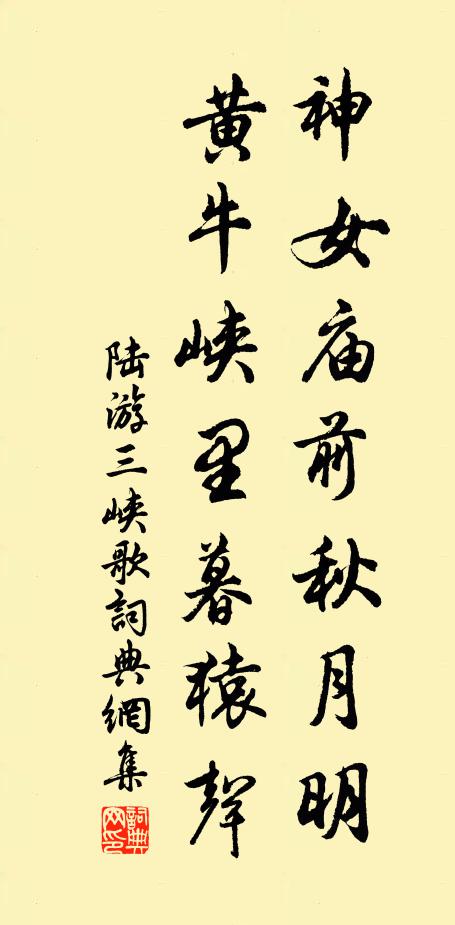 神女庙前秋月明
黄牛峡里暮猿聲
陆游三峡歌詞典網集
詞典网印